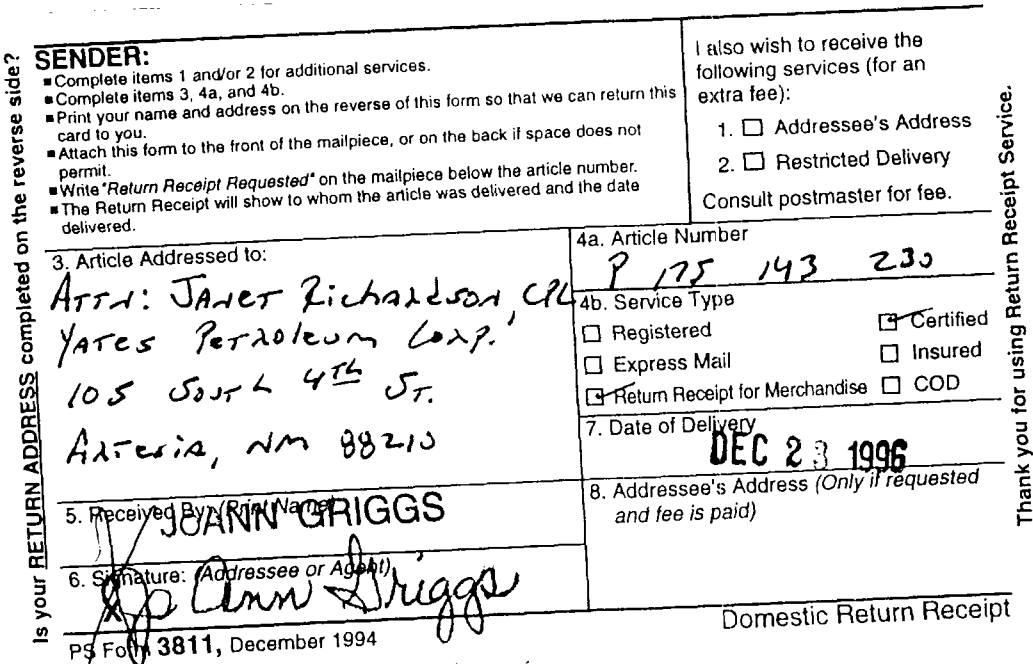 Is your RETURN ADDRESS completed on the reverse side?
SENDER:
■ Complete items 1 and/or 2 for additional services.
■ Complete items 3, 4a, and 4b.
■ Print your name and address on the reverse of this form so that we can return this
card to you.
■ Attach this form to the front of the mailpiece, or on the back if space does not
permit.
■ Write "Return Receipt Requested" on the mailpiece below the article number.
■ The Return Receipt will show to whom the article was delivered and the date
delivered.
I also wish to receive the
following services (for an
extra fee):
1. ☐ Addressee's Address
2. ☐ Restricted Delivery
Consult postmaster for fee.
3. Article Addressed to:
ATTN: JANET Richardson, CPL
YATES PETROLEUM CORP.
105 South 4TH ST.
Artesia, NM 88210
4a. Article Number
P 175 143 230
4b. Service Type
☐ Registered
☑ Certified
☐ Express Mail
☐ Insured
☑ Return Receipt for Merchandise
☐ COD
7. Date of Delivery
DEC 23 1996
5. Received By: (Print Name)
JOANN GRIGGS
8. Addressee's Address (Only if requested
and fee is paid)
6. Signature: (Addressee or Agent)
X Jo Ann Griggs
PS Form 3811, December 1994
Domestic Return Receipt
Thank you for using Return Receipt Service.